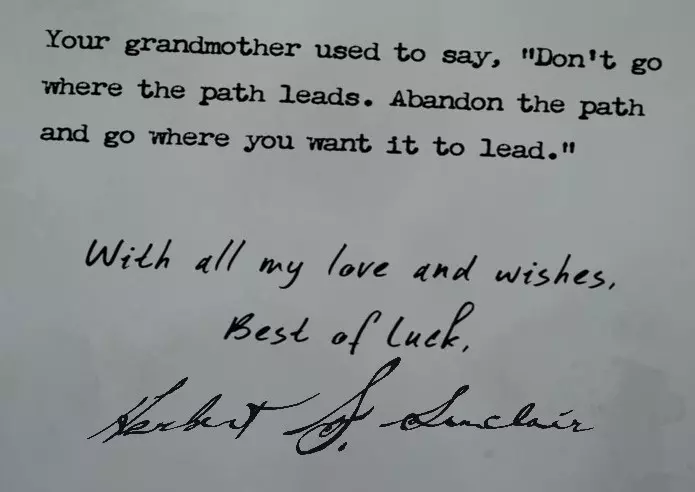 Your grandmother used to say, "Don't go
where the path leads. Abandon the path
and go where you want it to lead."
With all my love and wishes,
Best of luck,
Herbert S. Sinclair